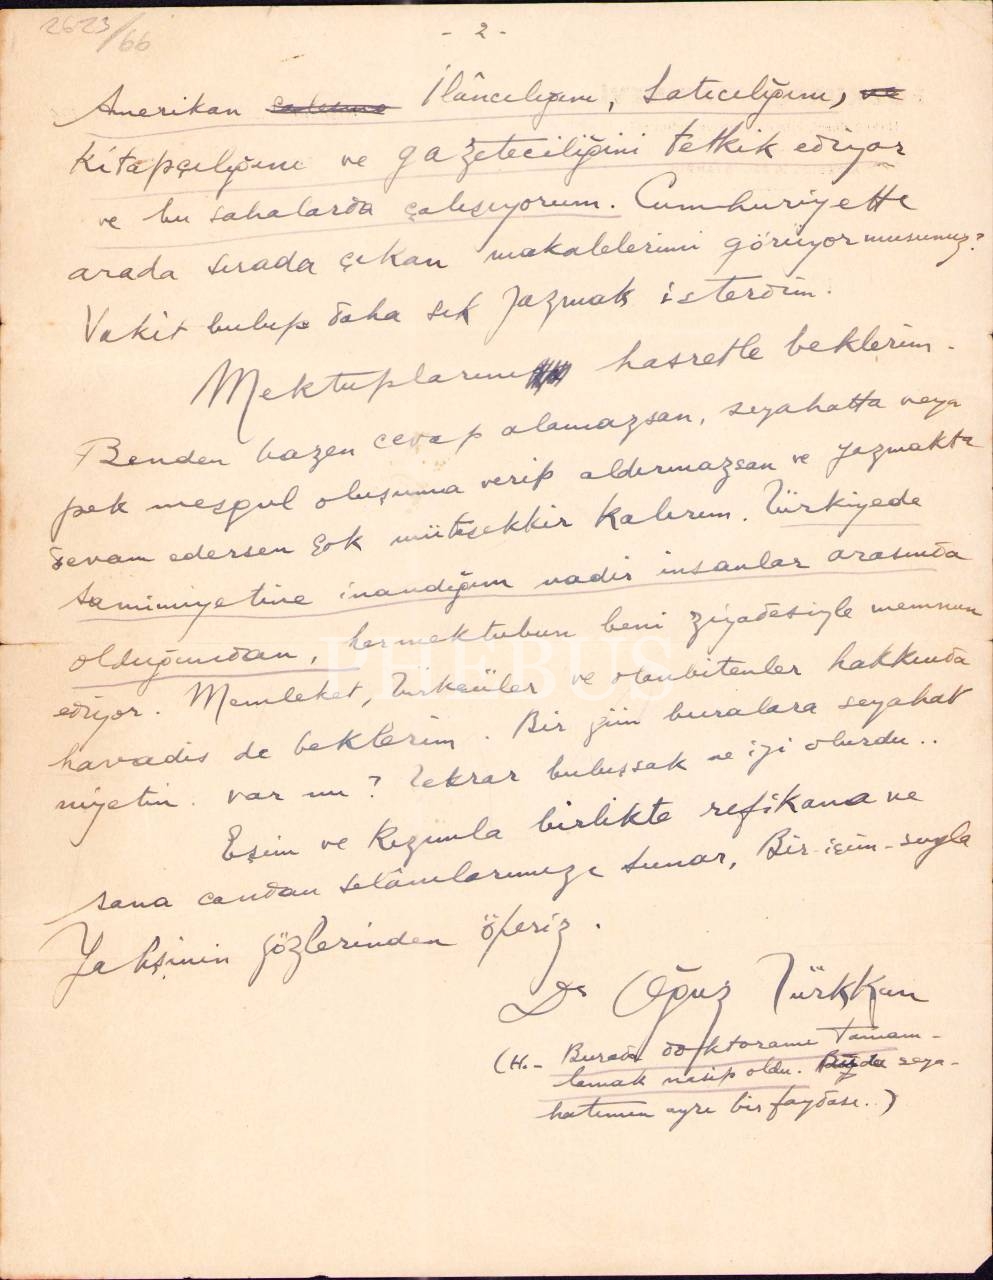 2623/66
- 2 -
Amerikan İlâncılığını, Satıcılığını, ve
kitapçılığını ve gazeteciliğini tetkik ediyor
ve bu sahalarda çalışıyorum. Cumhuriyette
arada sırada çıkan makalelerimi görüyormusunuz?
Vakit bulup daha sık yazmak isterdim.
Mektuplarını hasretle beklerim.
Benden bazen cevap alamazsan, seyahatta veya
pek meşgul oluşuma verip aldırmazsan ve yazmakta
devam edersen çok müteşekkir kalırım. Türkiyede
samimiyetine inandığım nadir insanlar arasında
olduğundan, her mektubun beni ziyadesiyle memnun
ediyor. Memleket, Türkcüler ve olanbitenler hakkında
havadis de beklerim. Bir gün buralara seyahat
niyetin var mı? Tekrar buluşsak ne iyi olurdu..
Eşim ve kızımla birlikte refikana ve
sana candan selâmlarımızı sunar,
Yahşinin gözlerinden öperiz.
Dr Oğuz Türkkan
(H.- Burada doktoramı tamam-
lamak nasip oldu. seya-
hatımın ayrı bir faydası..)
PHEBUS